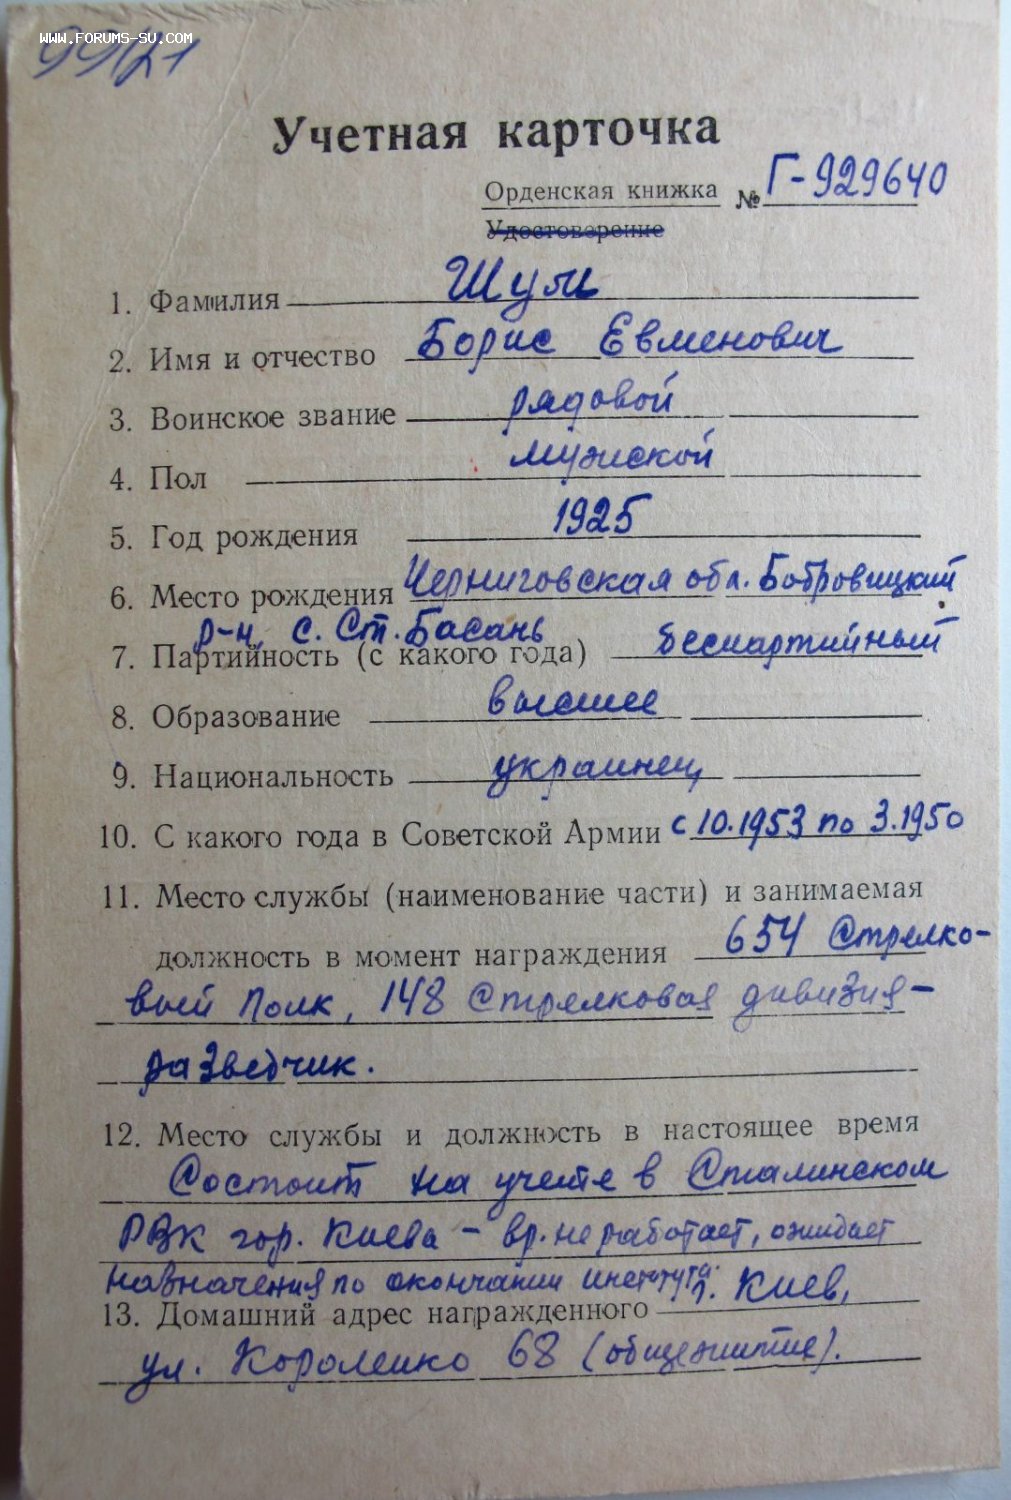 www.forums-su.com
Учетная карточка
Орденская книжка № Г-929640
Удостоверение
1. Фамилия Шум
2. Имя и отчество Борис Евменович
3. Воинское звание рядовой
4. Пол мужской
5. Год рождения 1925
6. Место рождения Черниговская обл. Бобровицкий
р-н, с. Ст. Басань
7. Партийность (с какого года) беспартийный
8. Образование высшее
9. Национальность украинец
10. С какого года в Советской Армии с 10.1953 по 3.1950
11. Место службы (наименование части) и занимаемая
должность в момент награждения 654 стрелко-
вый полк, 148 стрелковая дивизия-
разведчик.
12. Место службы и должность в настоящее время
Состоит на учете в Сталинском
РВК гор. Киева - вр. не работает, ожидает
назначения по окончании института.
13. Домашний адрес награжденного г. Киев,
ул. Короленко 68 (общежитие).